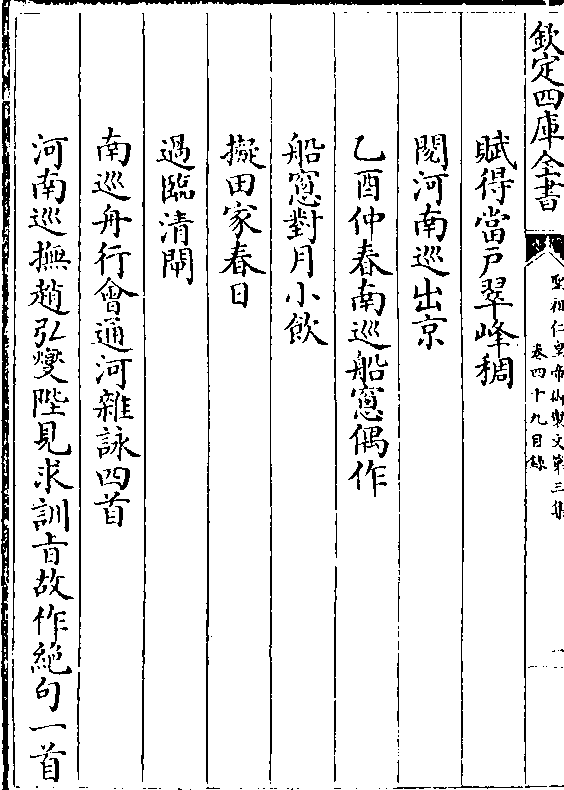 欽定四庫全書
聖祖仁皇帝御製文第三集
卷四十九目録
一
賦得當戶翠峰稠
閱河南巡出京
乙酉仲春南巡船窻偶作
船窻對月小飲
擬田家春日
過臨清閘
南巡舟行會通河雜詠四首
河南巡撫趙弘燮陛見求訓㫖故作絶句一首